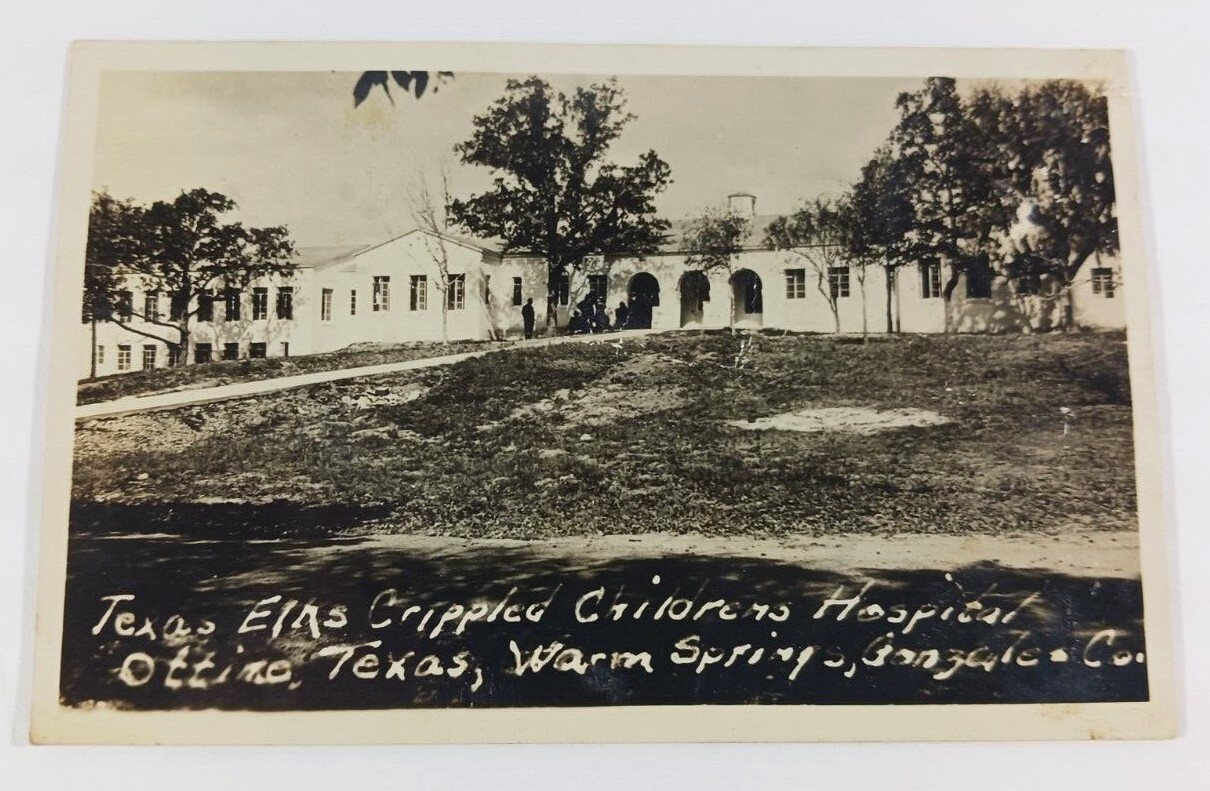 Texas Elks Crippled Childrens Hospital
Ottine, Texas, Warm Springs, Gonzales Co.